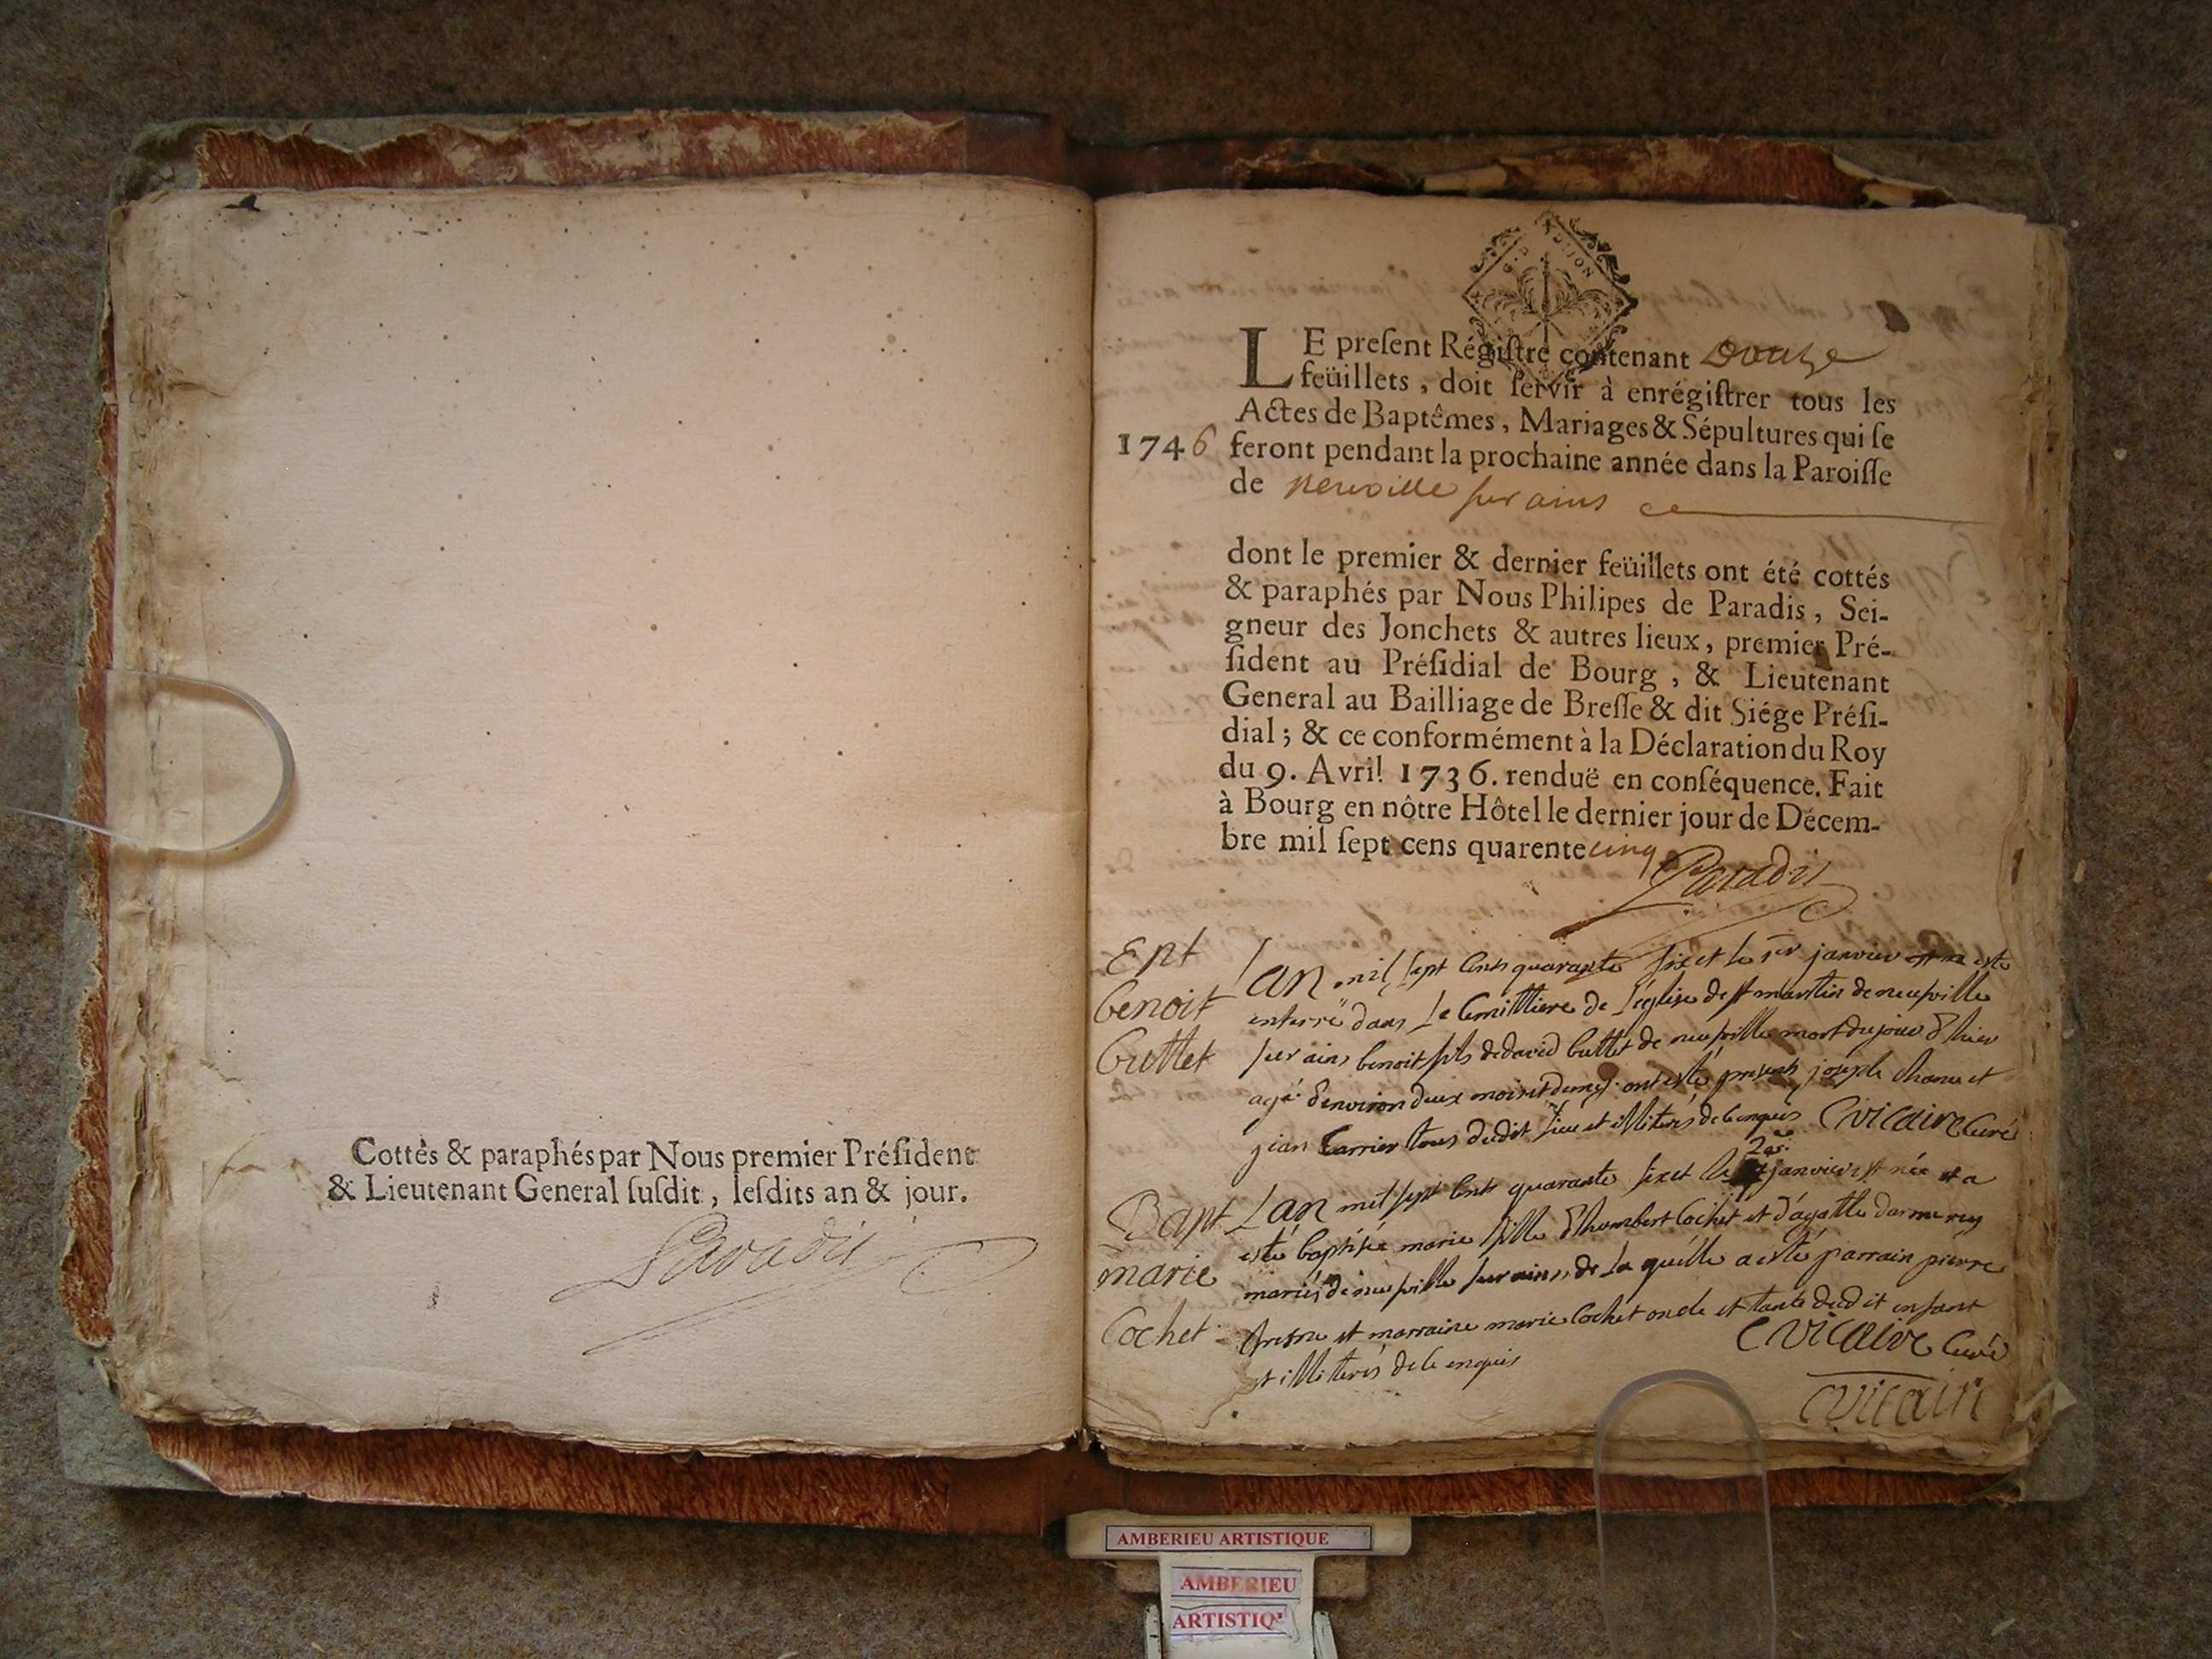 Cottés & paraphés par Nous premier Préſident
& Lieutenant General ſuſdit, leſdits an & jour.
Paradis
G. D. DIJON
LE preſent Régiſtre contenant Douze
feüillets, doit ſervir à enrégiſtrer tous les
Actes de Baptêmes, Mariages & Sépultures qui ſe
1746 feront pendant la prochaine année dans la Paroiſſe
de neuville sur ains
dont le premier & dernier feüillets ont été cottés
& paraphés par Nous Philipes de Paradis, Sei-
gneur des Jonchets & autres lieux, premier Pré-
ſident au Préſidial de Bourg, & Lieutenant
General au Bailliage de Breſſe & dit Siége Préſi-
dial; & ce conformément à la Déclaration du Roy
du 9. Avril 1736. renduë en conſéquence. Fait
à Bourg en nôtre Hôtel le dernier jour de Décem-
bre mil ſept cens quarente cinq
Paradis
Ent
benoit
buttet
lan mil sept cents quarante six et le 1er janvier a esté
enterré dans le Cemittiere de l'église de st martin de neufville
sur ains benoit fils de david buttet de neufville mort du jour d'hier
agé d'environ deux mois et demy. ont esté presents joseph et
jean Carrier tous dudit lieu et illiterés de ce enquis Vicaire Curé
Bapt
marie
Cochet
Lan mil sept cents quarante six et le 2de janvier est née et a
esté baptisée marie fille d'humbert Cochet et d'agatte darmerey
mariés de neufville sur ains, de la quelle a esté parrain pierre
et marraine marie Cochet oncle et tante dudit enfant
et illiterés de ce enquis Vicaire Curé
Vicain
AMBERIEU ARTISTIQUE
AMBERIEU
ARTISTIQ